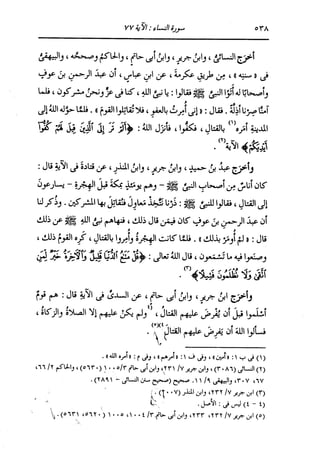 ٥٣٨ سورة النساء : الآية ٧٧
أخرَج النسائيُّ ، وابنُ جريرٍ ، وابنُ أبي حاتمٍ ، والحاكمُ وصحَّحه ، والبيهقيُّ
في « سننِه » ، من طريقِ عكرمةَ ، عن ابنِ عباسٍ ، أن عبدَ الرحمنِ بنَ عوفٍ
وأصحابًا له أتَوُا النبيَّ ﷺ فقالوا : يا نبيَّ اللهِ ، كنا في عزٍّ ونحن مشركون ، فلما
آمنَّا صِرْنا أذلةً . فقال : « إني أُمِرتُ بالعفوِ ، فلا تُقاتِلوا القومَ » . فلمَّا حوَّله اللهُ إلى
المدينةِ أمَره (١) بالقتالِ ، فكفُّوا ، فأنزَل اللهُ : ﴿ أَلَمْ تَرَ إِلَى ٱلَّذِينَ قِيلَ لَهُمْ كُفُّوٓا۟
أَيْدِيَكُمْ ﴾ الآية (٢) .
وأخرَج عبدُ بنُ حميدٍ ، وابنُ جريرٍ ، وابنُ المنذرِ ، عن قتادةَ في الآيةِ قال :
كان أناسٌ مِن أصحابِ النبيِّ ﷺ - وهم يومَئذٍ بمكةَ قبلَ الهجرةِ - يسارعون
إلى القتالِ ، فقالوا للنبيِّ ﷺ : ذَرْنا نَتَّخِذْ معاوِلَ فنقاتلَ بها المشركين . وذُكر لنا
أن عبدَ الرحمنِ بنَ عوفٍ كان فيمَن قال ذلك ، فنهاهم نبيُّ اللهِ ﷺ عن ذلك
قال : « لم أُومَرْ بذلك » . فلمَّا كانت الهجرةُ وأُمِروا بالقتالِ ، كرِه القومُ ذلك ،
وصنَعوا فيه ما تسْمَعون ، قال اللهُ تعالى : ﴿ قُلْ مَتَٰعُ ٱلدُّنْيَا قَلِيلٌ وَٱلْـَٔاخِرَةُ خَيْرٌ لِّمَنِ
ٱتَّقَىٰ وَلَا تُظْلَمُونَ فَتِيلًا ﴾ (٣) .
وأخرَج ابنُ جريرٍ ، وابنُ أبي حاتمٍ ، عن السديِّ في الآيةِ قال : هم قومٌ
أسلَموا قبلَ أن يُفْرَضَ عليهم القتالُ ، ولم يكنْ عليهم إلا الصلاةُ والزكاةُ ،
فسأَلوا اللهَ أن يَفْرِضَ عليهم القتالَ
(١) في ب ١ : « آمين » ، وفى ف ١ : « أمرهم » ، وفى م : « أمره الله » .
(٢) النسائى (٣٠٨٦) ، وابن جرير ٧/ ٢٣١ ، وابن أبى حاتم ٣/ ١٠٠٥ (٥٦٣٠) ، والحاكم ٢/ ٦٦ ،
٦٧ ، ٣٠٧ ، والبيهقى ٩/ ١١ . صحيح (صحيح سنن النسائى - ٢٨٩١) .
(٣) ابن جرير ٧/ ٢٣٢ ، وابن المنذر
(٤ - ٤) ليس فى : الأصل .
(٥) ابن جرير ٧/ ٢٣٢ ، ٢٣٣ ، وابن أبى حاتم ٣/ ١٠٠٤ ، ١٠٠٥ (٥٦٢٠ ، ٥٦٣١) .